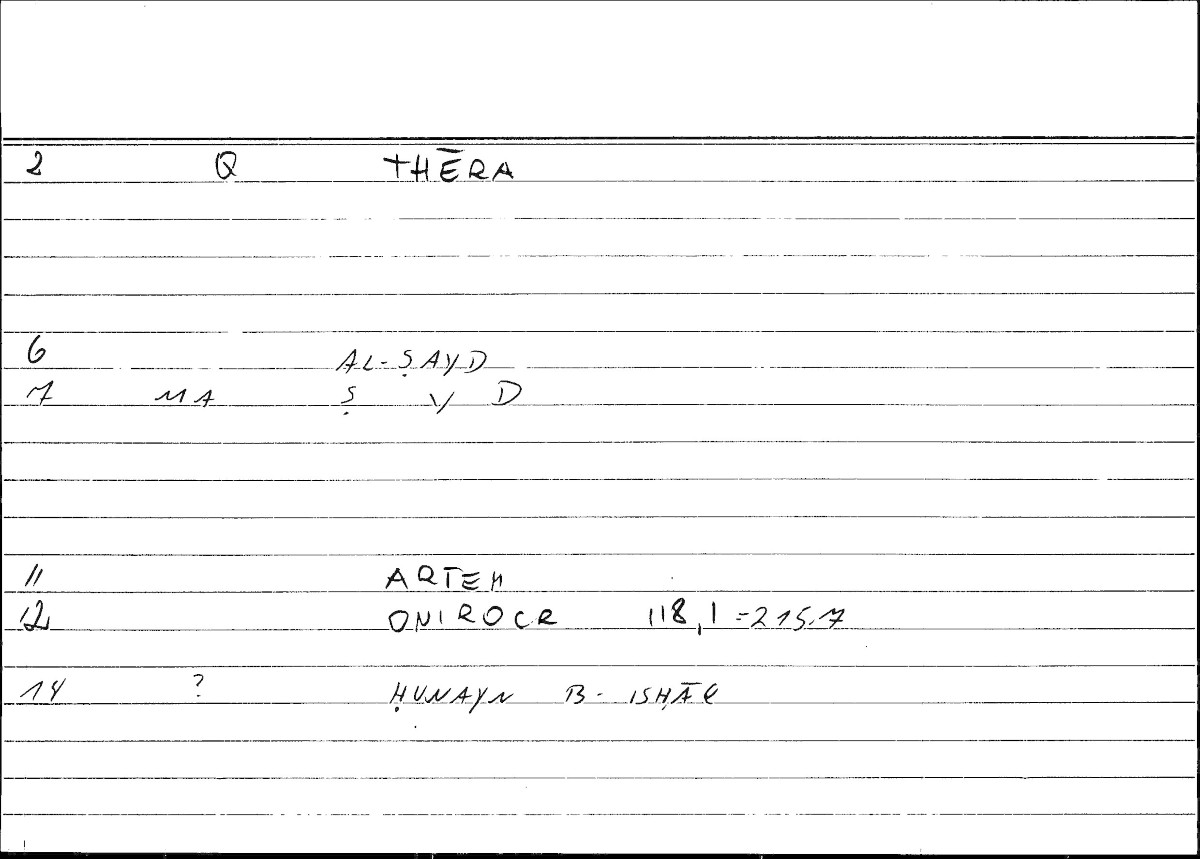 2 Q THĒRA
6 AL-ṢAYD
7 MA Ṣ Y D
11 ARTEM
12 ONIROCR 118,1 =215.7
14 ? ḤUNAYN B. ISḤĀQ